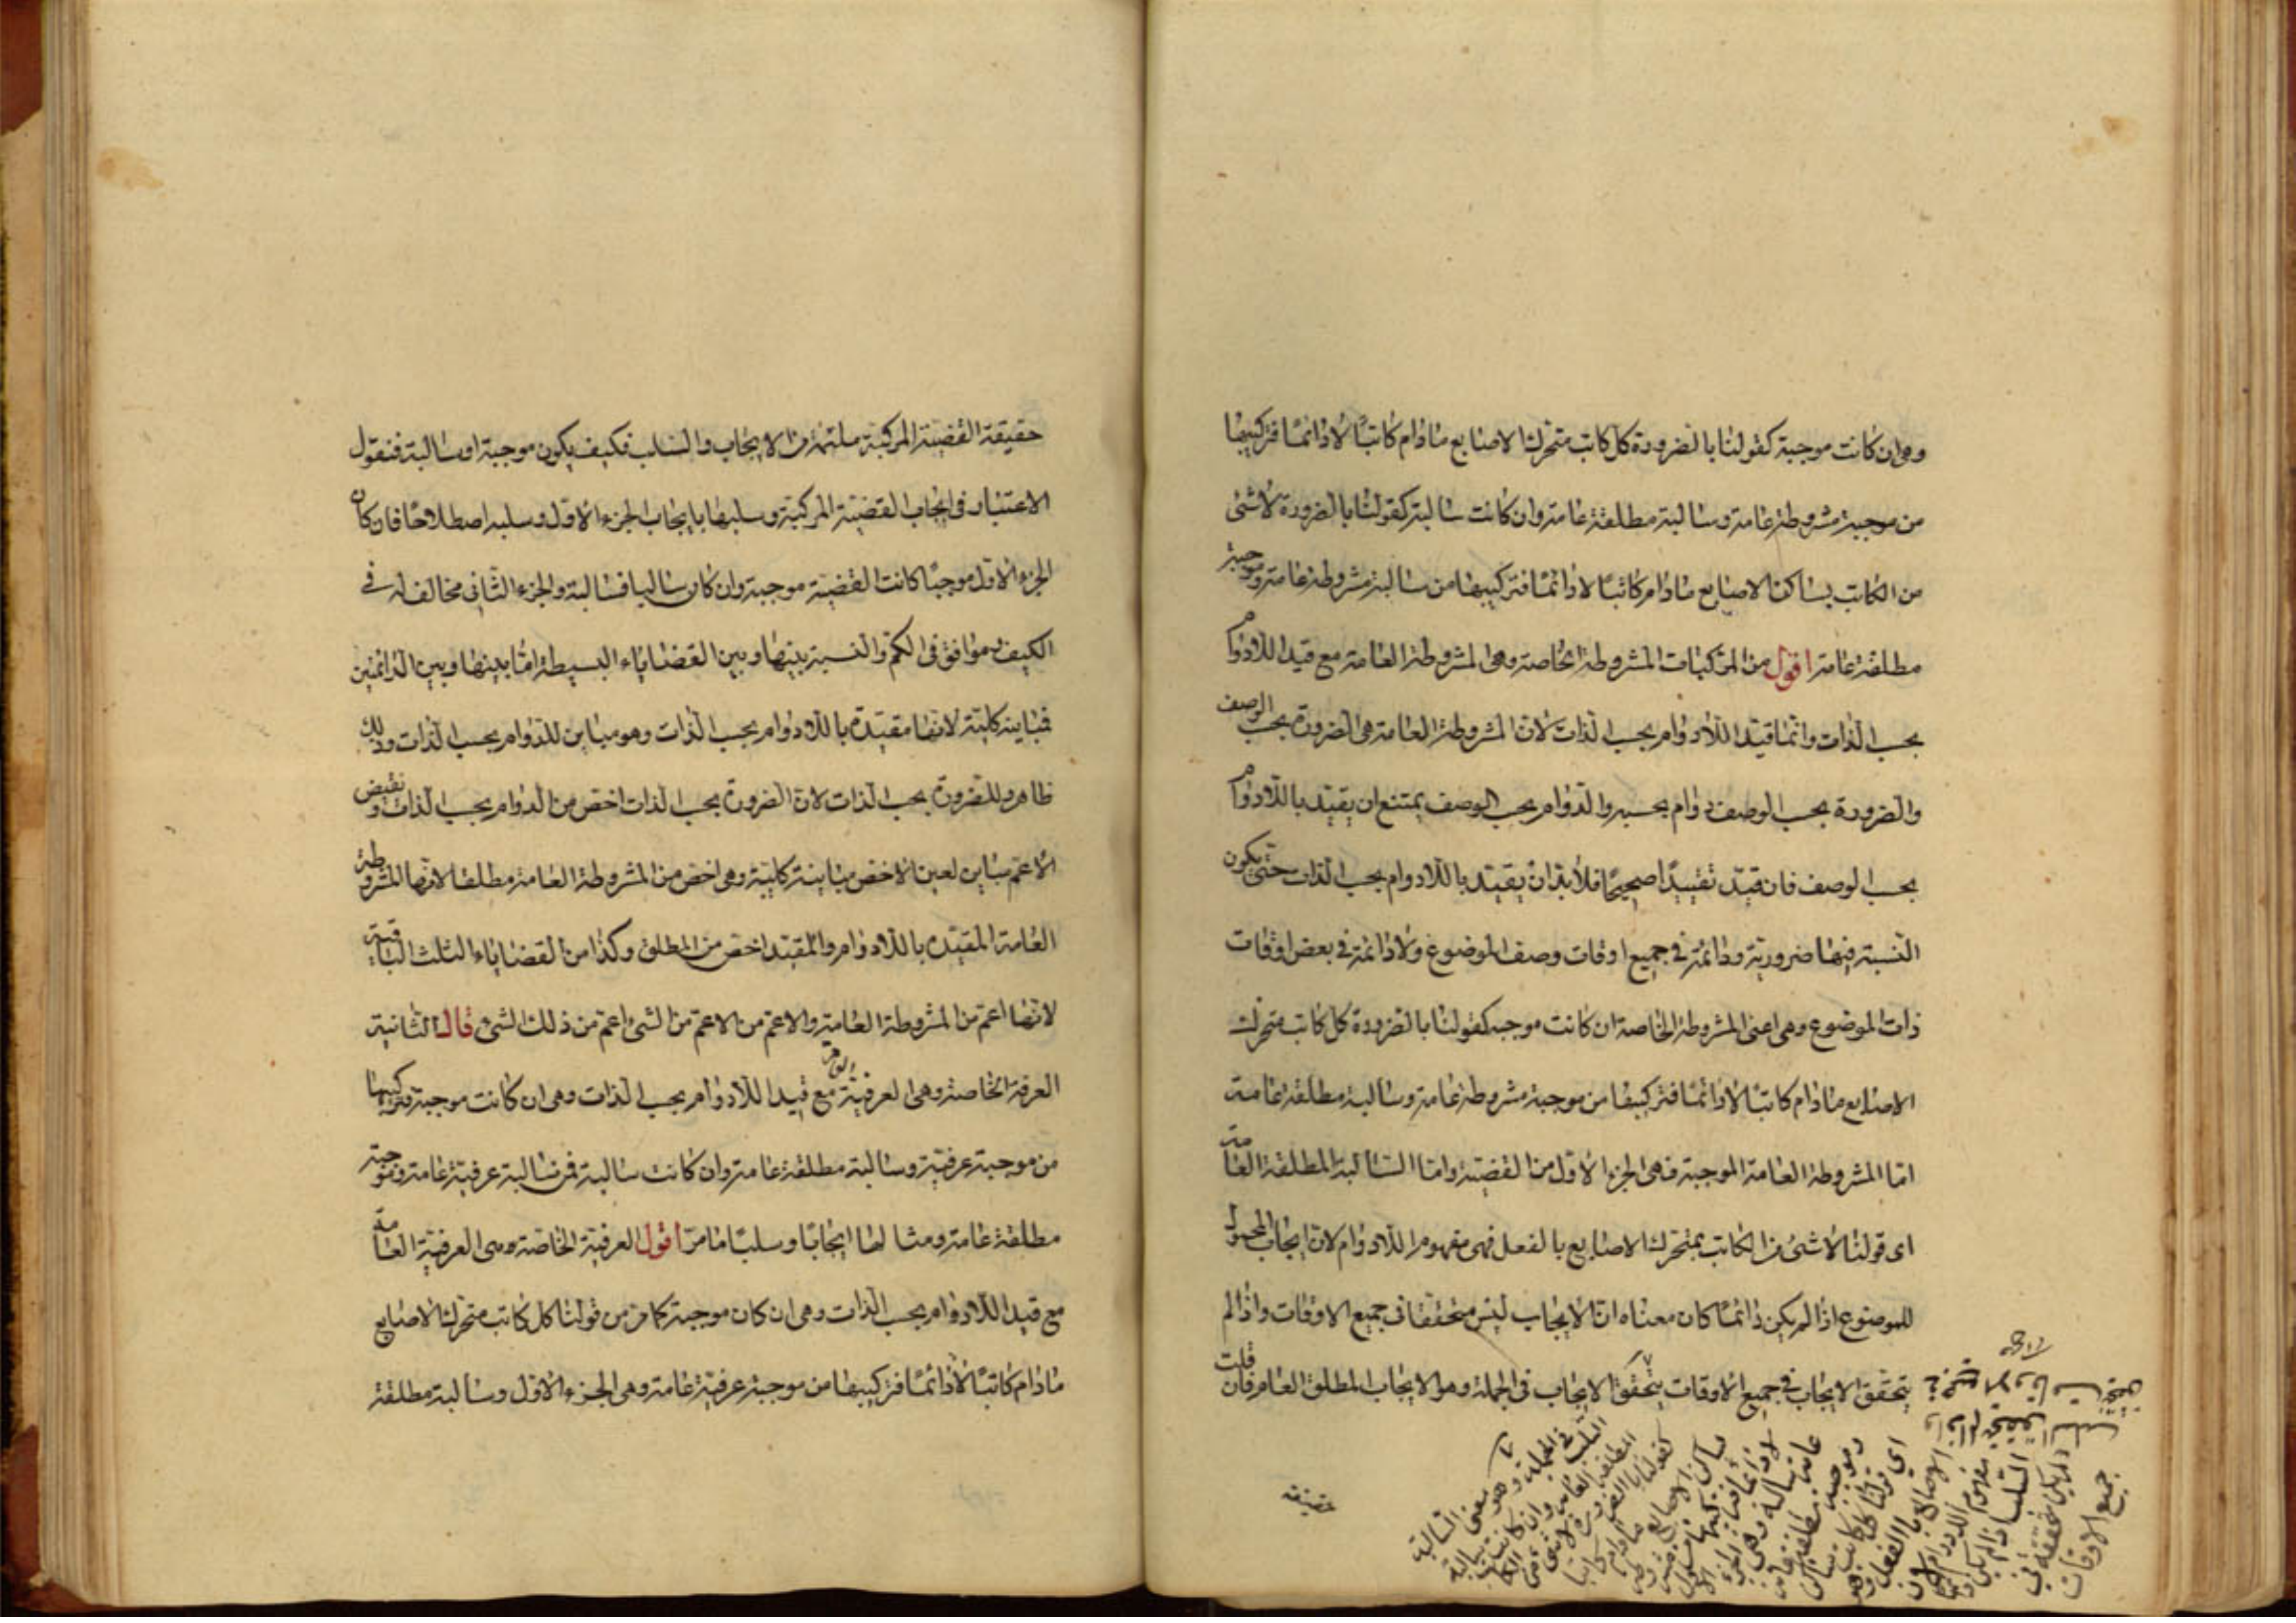 وهى ان كانت موجبة كقولنا بالضرورة كل كاتب متحرك الاصابع مادام كاتبًا لا دائمًا فتركيبها
من موجبة مشروطة عامة وسالبة مطلقة عامة وان كانت سالبة كقولنا بالضرورة لا شئ
من الكاتب بساكن الاصابع مادام كاتبًا لا دائمًا فتركيبها من سالبة مشروطة عامة وموجبة
مطلقة عامة اقول من المركبات المشروطة الخاصة وهى المشروطة العامة مع قيد اللادوام
بحسب الذات وانما قيد اللادوام بحسب الذات لان المشروطة العامة هى الضرورة بحسب الوصف
والضرورة بحسب الوصف دوام بحسبه والدوام بحسب الوصف يمتنع ان يقيد باللادوام
بحسب الوصف فان قيد تقييدًا صحيحًا فلا بد ان يقيد باللادوام بحسب الذات حتى يكون
النسبة فيها ضرورية ودائمة فى جميع اوقات وصف الموضوع ولا دائمة فى بعض اوقات
ذات الموضوع وهى اعنى المشروطة الخاصة ان كانت موجبه كقولنا بالضرورة كل كاتب متحرك
الاصابع مادام كاتبًا لا دائمًا فتركيبها من موجبة مشروطة عامة وسالبة مطلقة عامة
اما المشروطة العامة الموجبة فهى الجزء الاول من القضية واما السالبة المطلقة العامة
اى قولنا لا شئ من الكاتب بمتحرك الاصابع بالفعل فهى مفهوم اللادوام لان ايجاب المحمول
للموضوع اذا لم يكن دائمًا كان معناه ان الايجاب ليس متحققا فى جميع الاوقات واذا لم
يتحقق الايجاب فى جميع الاوقات يتحقق الايجاب فى الجملة وهو الايجاب المطلق العام فان قلت
السلب فى الجملة وهو معنى السالبة
المطلقة العامة وان كانت سالبة
كقولنا بالضرورة لا شئ من الكاتب
بساكن الاصابع مادام كاتبا
لا دائما فتركيبها من مشروطة
عامة سالبة وهى الجزء الاول
وموجبة مطلقة عامة
اى قولنا كل كاتب ساكن
الاصابع بالفعل وهو
مفهوم اللادوام لان
السلب اذا لم يكن دائما
لم يكن متحققا فى
جميع الاوقات
حقيقة
حقيقة القضية المركبة ملتئمة من الايجاب والسلب فكيف يكون موجبة او سالبة فنقول
الاعتبار فى ايجاب القضية المركبة وسلبها بايجاب الجزء الاول وسلبه اصطلاحًا فان كان
الجزء الاول موجبًا كانت القضية موجبة وان كان سالبا فسالبة والجزء الثانى مخالف له فى
الكيف وموافق فى الكم والنسبة بينها وبين القضاياء البسيطة اما بينها وبين الدائمتين
فمباينة كلية لانها مقيدة باللادوام بحسب الذات وهو مباين للدوام بحسب الذات وذلك
ظاهر وللضرورة بحسب الذات لان الضرورة بحسب الذات اخص من الدوام بحسب الذات ونقيض
الاعم مباين لعين الاخص مباينة كلية وهى اخص من المشروطة العامة مطلقا لانها المشروطة
العامة المقيدة باللادوام والمقيد اخص من المطلق وكذا من القضاياء الثلث الباقية
لانها اعم من المشروطة العامة والاعم من الاعم من الشئ اعم من ذلك الشئ قال الثانية
العرفية الخاصة وهى العرفية العامة مع قيد اللادوام بحسب الذات وهى ان كانت موجبة فتركيبها
من موجبة عرفية وسالبة مطلقة عامة وان كانت سالبة فمن سالبة عرفية عامة وموجبة
مطلقة عامة ومثالها ايجابًا وسلبًا ما مر اقول العرفية الخاصة وهى العرفية العامة
مع قيد اللادوام بحسب الذات وهى ان كان موجبة كما مر من قولنا كل كاتب متحرك الاصابع
مادام كاتبًا لا دائمًا فتركيبها من موجبة عرفية عامة وهى الجزء الاول وسالبة مطلقة